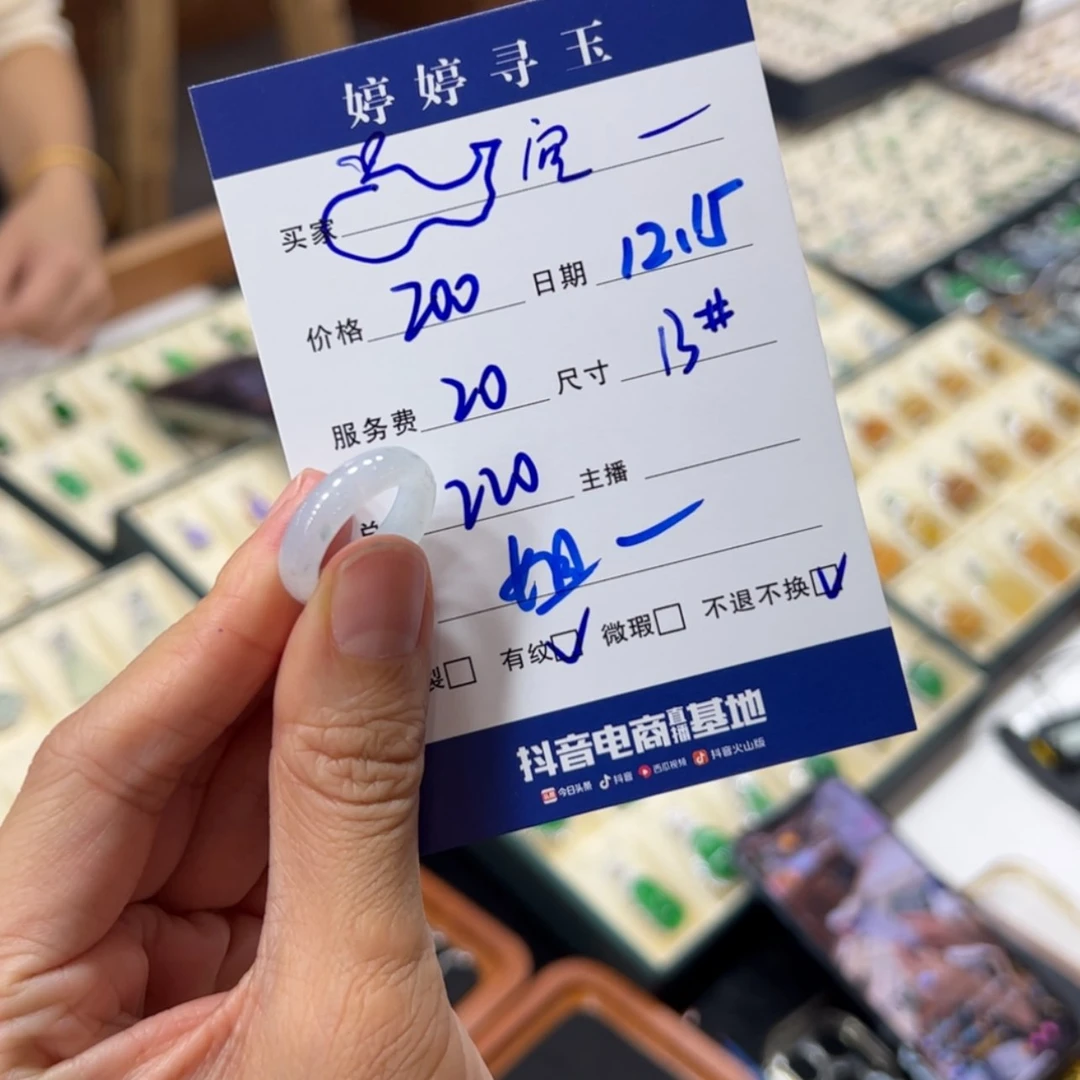 婷婷寻玉
买家 一
价格 200 日期 12.15
服务费 20 尺寸 13#
总 220 主播
姐 一
裂□ 有纹☑ 微瑕□ 不退不换☑
抖音电商直播基地
今日头条 抖音 西瓜视频 抖音火山版